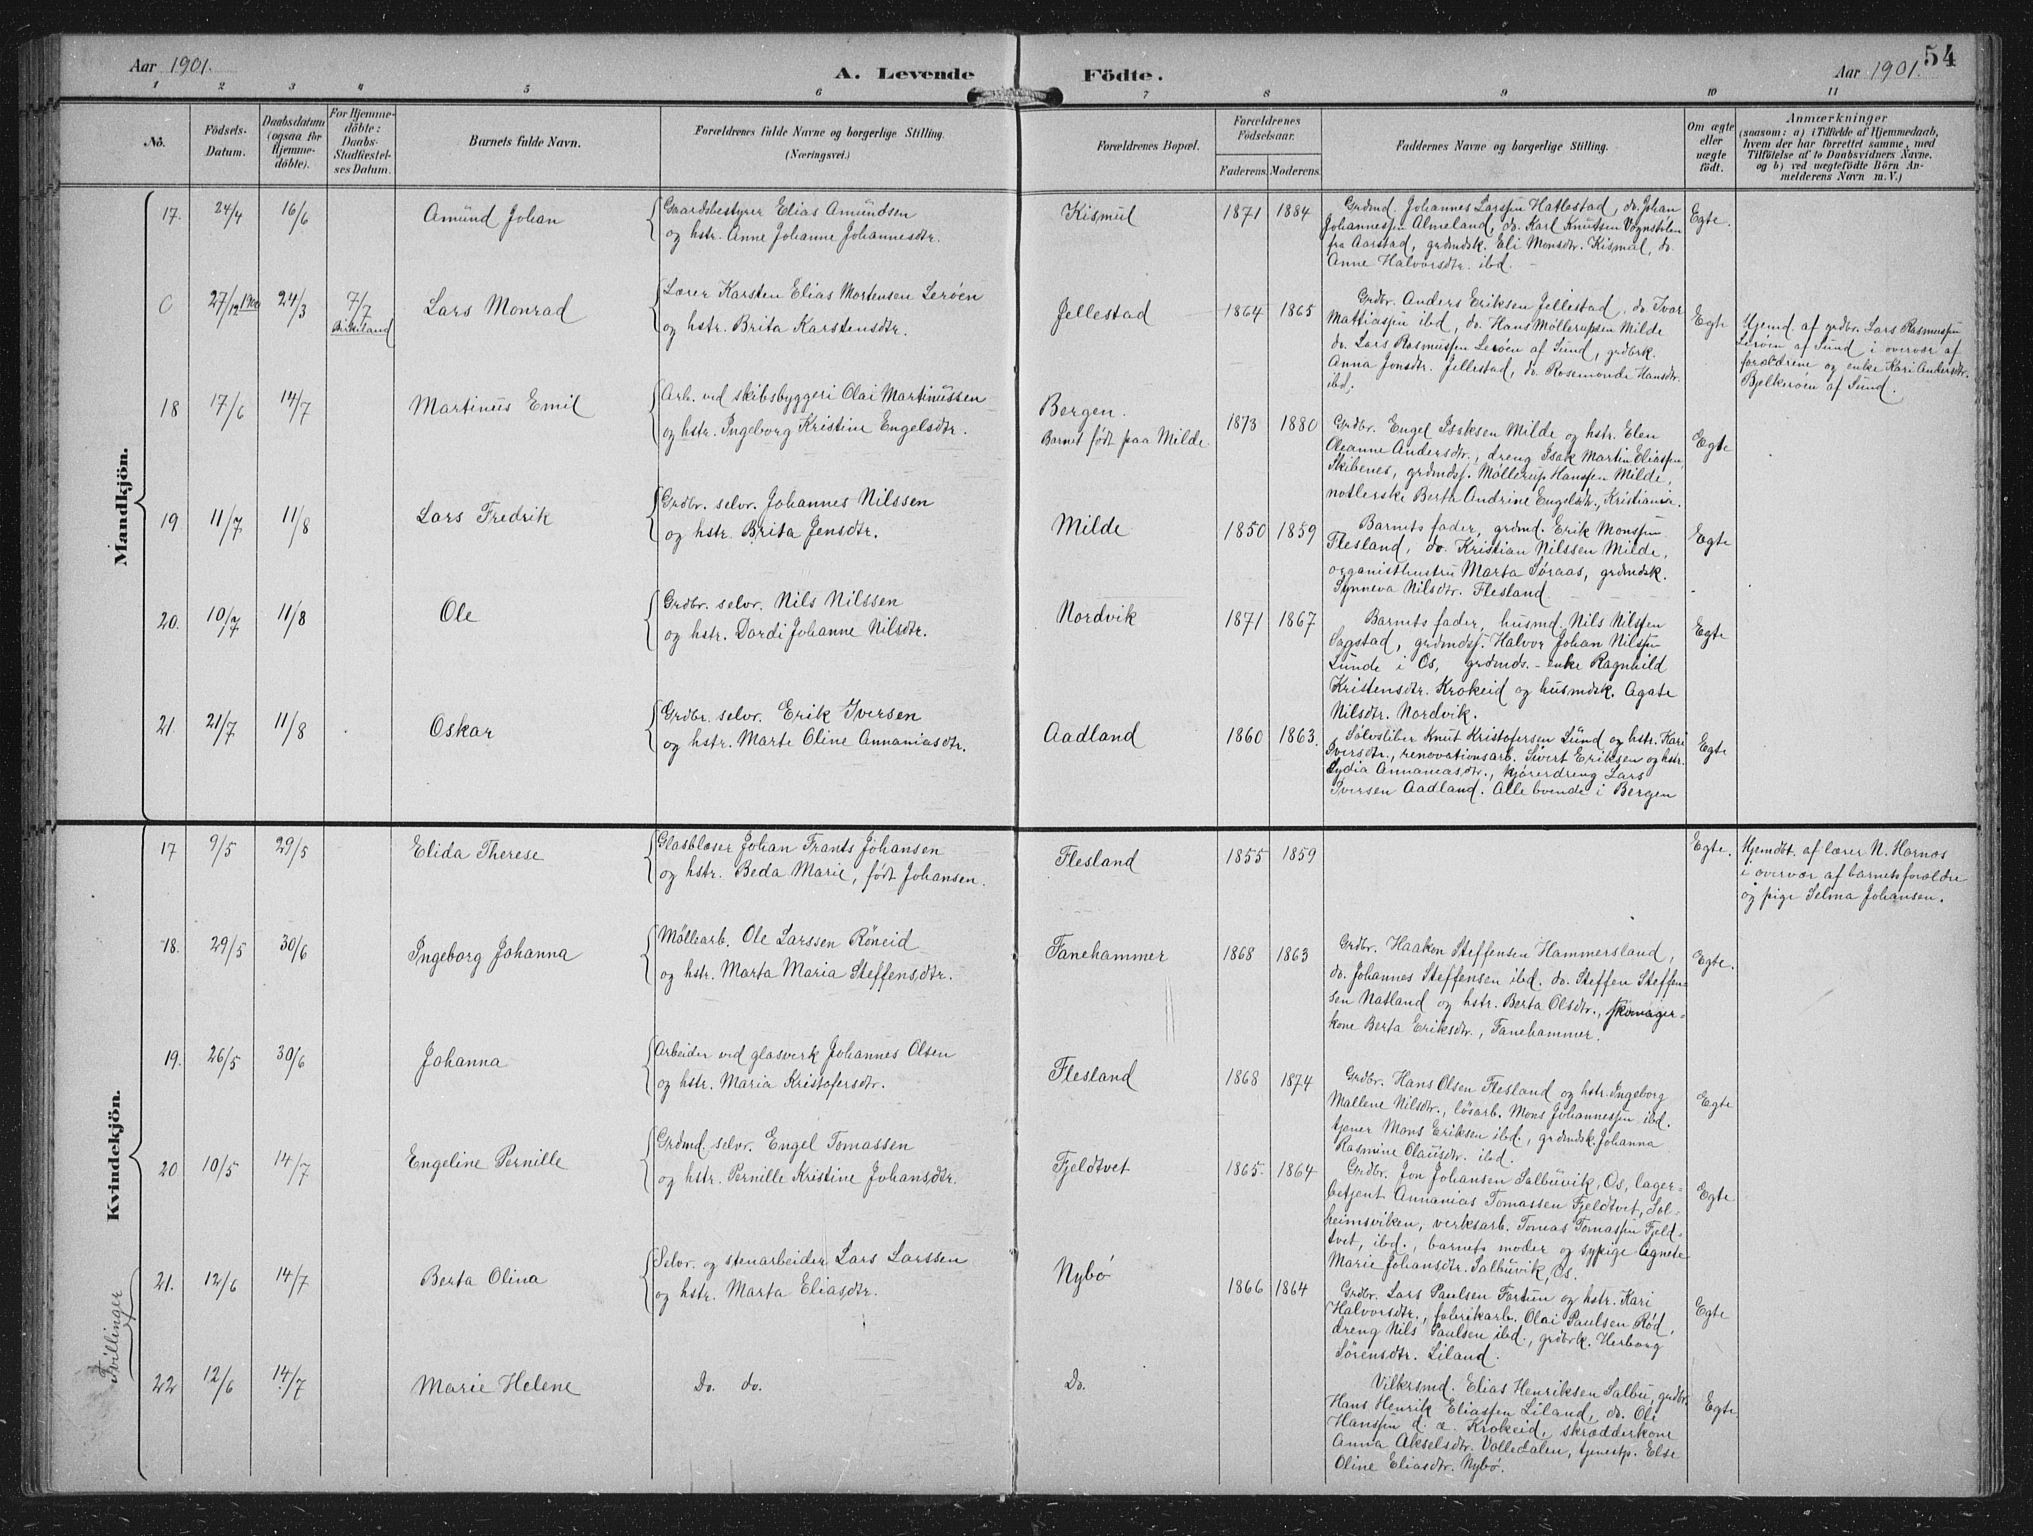 54
Aar 1901.
A. Levende Födte.
Aar 1901.
1 2 3 4 5 6 7 8 9 10 11
No.
Födsels-Datum.
Daabsdatum (ogsaa för Hjemme-döbte).
For Hjemme-döbte: Daabs-Stadfæstel-ses Datum.
Barnets fulde Navn.
Forældrenes fulde Navne og borgerlige Stilling.
(Næringsvei.)
Forældrenes Bopæl.
Forældrenes Födselsaar.
Faderens. Moderens.
Faddernes Navne og borgerlige Stilling.
Om ægte eller uægte födt.
Anmærkninger
(saasom: a) i Tilfælde af Hjemmedaab,
hvem der har forrettet samme, med
Tilföielse af to Daabsvidners Navne,
og b) ved uægtefödte Börn An-
melderens Navn m. V.)
Mandkjön.
17. 24/4 16/6 Amünd Johan
Gaardsbestyrer Elias Amündsen
og hstr. Anne Johanne Johannesdtr.
Kismul 1871 1884
Grdmd. Johannes Larssen Hatlestad, do. Johan
Johannessen Almeland, do. Karl Knutsen Vognstølen
fra Aarstad, grdmdsk. Eli Monsdtr. Kismul, do.
Anne Halvorsdtr. ibd.
Egte.
0 27/12 1900 24/3 7/7 Birkeland Lars Monrad
Lærer Karsten Elias Mortensen Lerøen
og hstr. Brita Karstensdtr.
Jellestad 1864 1865
Grdbr. Anders Eriksen Jellestad, do. Ivar
Mattiassen ibd, do. Hans Möllerupsen Milde
do. Lars Rasmussen Lerøen af Sund, grdbrk.
Anna Jonsdtr. Jellestad, do. Rosemonde Hansdtr.
ibd.
Egte
Hjemd. af grdbr. Lars Rasmussen
Lerøen af Sund i overvær af
forældrene og enke Kari Andersdtr.
Bjelkerøen af Sund.
18 17/6 14/7 Martinus Emil
Arb. ved skibsbyggeri Olai Martinüssen
og hstr. Ingeborg Kristine Engelsdtr.
Bergen.
Barnet født paa Milde. 1873 1880
Grdbr. Engel Isaksen Milde og hstr. Elen
Oleanne Andersdtr., dreng Isak Martin Eliassen,
Skibenes, grdmdss. Møllerup Hanssen Milde,
Berta Andrine Engelsdtr., Kristiania.
Egte
19 11/7 11/8 Lars Fredrik
Grdbr. selv. Johannes Nilssen
og hstr. Brita Jensdtr.
Milde 1850 1859
Barnets fader, grdmd. Erik Monssen
Flesland, do. Kristian Nilssen Milde,
organisthustru Marta Søraas, grdmdsk.
Synneva Nilsdtr. Flesland
Egte
20. 10/7 11/8 Ole
Grdbr. selv. Nils Nilssen
og hstr. Dordi Johanne Nilsdtr.
Nordvik 1871 1867
Barnets fader, husmd. Nils Nilssen
Sagstad, grdmdss. Halvor Johan Nilssen
Lunde i Os, grdmds.-enke Ragnhild
Kristensdtr. Krokeid og husmdsk. Agate
Nilsdtr. Nordvik.
Egte
21 21/7 11/8 Oskar
Grdbr. selv. Erik Iversen
og hstr. Marte Oline Annaniasdtr.
Aadland 1860 1863.
Kristofersen Lünd og hstr. Kari
Iversdtr., renovationsarb. Sivert Eriksen og hstr.
Lydia Annaniasdtr., kjørerdreng Lars
Iversen Aadland. Alle boende i Bergen
Egte
Kvindekjön.
17 9/5 29/5 Elida Therese
Glasblaser Johan Frants Johansen
og hstr. Beda Marie, født Johansen.
Flesland 1855 1859
Egte.
Hjemdbt. af lærer N. Hornæs
i overvær af barnets forældre
og pige Selma Johansen.
18. 29/5 30/6 Ingeborg Johanna
Møllearb. Ole Larssen Røneid
og hstr. Marta Maria Steffensdtr.
Fanehammer 1868 1863
Grdbr. Haakon Steffensen Hammersland,
do. Johannes Steffensen ibd. do. Steffen Steffen-
sen Natland og hstr. Berta Olsdtr., skomager-
kone Berta Eriksdtr., Fanehammer.
Egte.
19. 26/5 30/6 Johanna
Arbeider ved glasverk Johannes Olsen
og hstr. Maria Kristofersdtr.
Flesland 1868 1874
Grdbr. Hans Olsen Flesland og hstr. Ingeborg
Mallene Nilsdtr., løsarb. Mons Johannessen ibd.
tjener Mons Eriksen ibd., grdmdsk. Johanna
Rasmine Olausdtr. ibd.
Egte
20 10/5 14/7 Engeline Pernille
Grdmd. selv. Engel Tomassen
og hstr. Pernille Kristine Johansdtr.
Fjeldtvet 1865. 1864
Grdbr. Jon Johansen Salbuvik, Os, lager-
betjent Annanias Tomassen Fjeldtvet, Sol-
heimsviken, verksarb. Tomas Tomassen Fjeld-
tvet, ibd., barnets moder og sypige Agnete
Marie Johansdtr. Salbuvik, Os.
Egte
Tvillinger
21. 12/6 14/7 Berta Olina
Selv. og stenarbeider Lars Larssen
og hstr. Marta Eliasdtr.
Nybø 1866 1864
Grdbr. Lars Paulsen Fortun og hstr. Kari
Halvorsdtr., fabrikarb. Olai Paulsen Rød,
dreng Nils Paulsen ibd., grdbrk. Herborg
Sørensdtr. Liland.
Egte
22 12/6 14/7 Marie Helene
Do. do.
Do.
Elias Henriksen Salbu, grdbr.
Hans Henrik Eliassen Liland, do. Ole
Hanssen d. æ. Krokeid, skrædderkone
Anna Akselsdtr. Volledalen, tjenestp. Else
Oline Eliasdtr. Nybø.
Egte